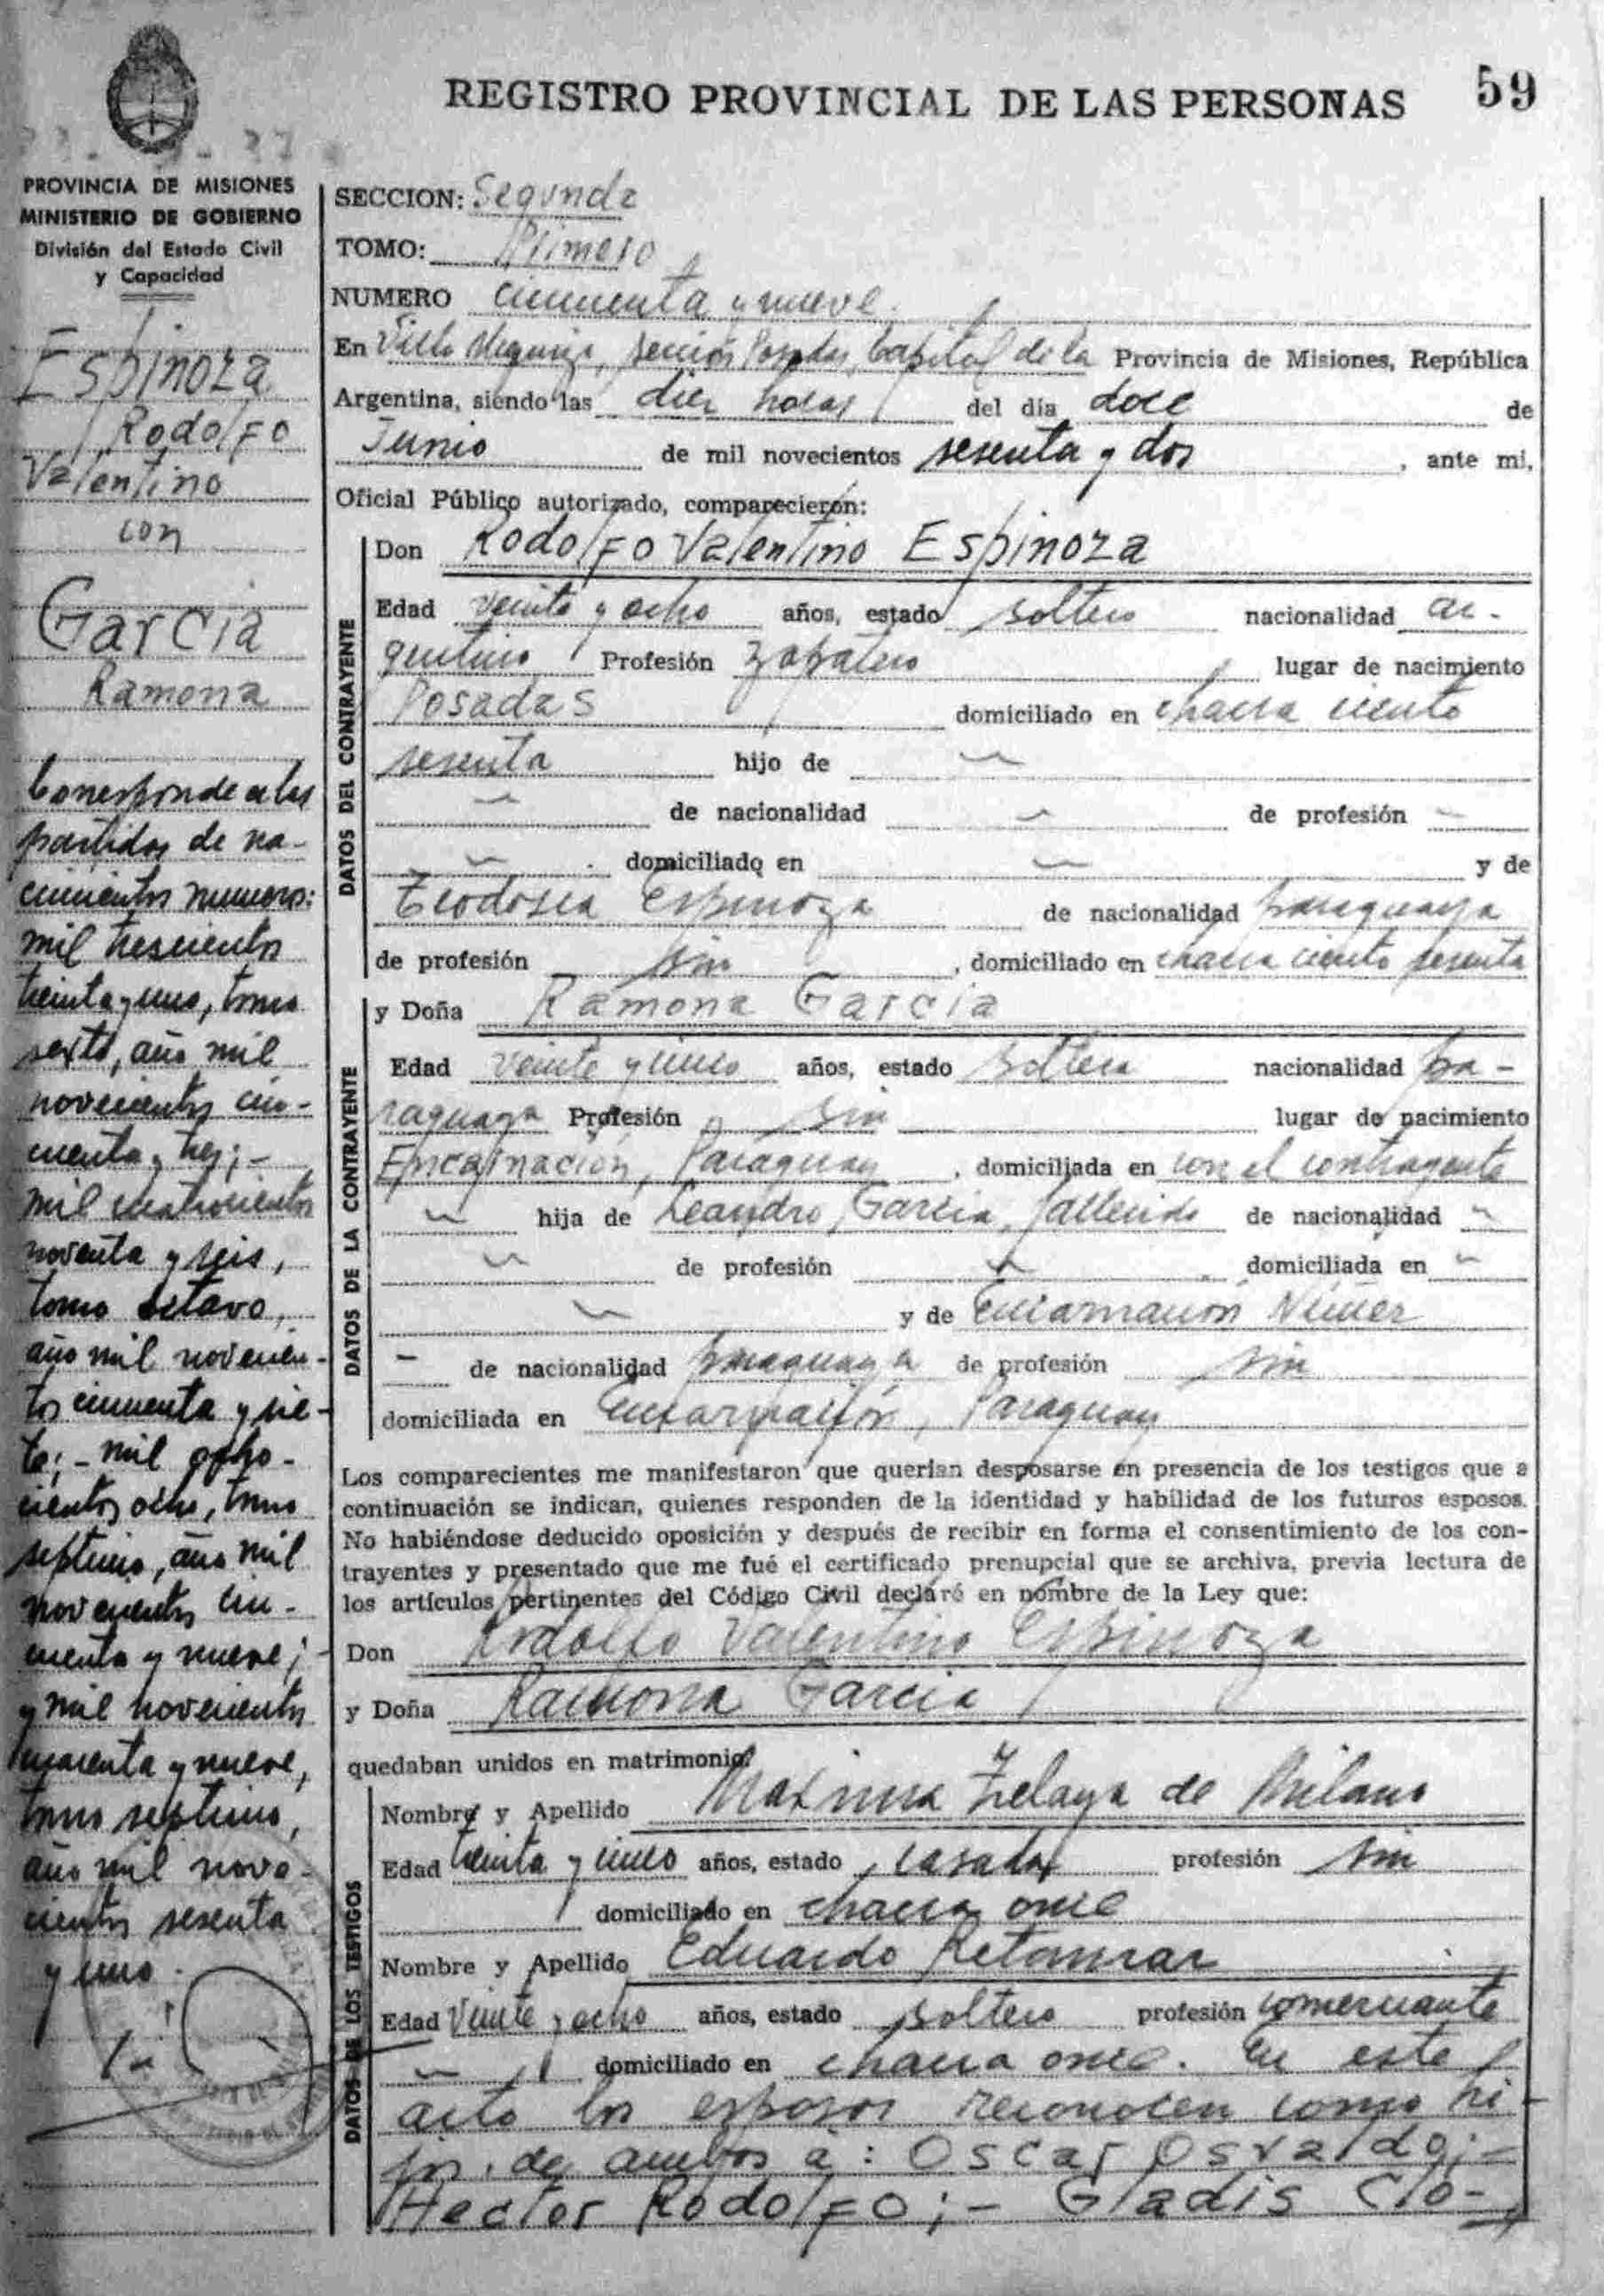 REGISTRO PROVINCIAL DE LAS PERSONAS
59
PROVINCIA DE MISIONES
MINISTERIO DE GOBIERNO
División del Estado Civil
y Capacidad
Espinoza
Rodolfo
Valentino
con
Garcia
Ramona
Corresponde a las
partidas de na-
cimientos numeros:
mil trescientos
treinta y uno, tomo
sexto, año mil
novecientos cin-
cuenta y tres; -
mil cuatrocientos
noventa y seis,
tomo octavo,
año mil novecien-
tos cincuenta y sie-
te; - mil ocho-
cientos ocho, tomo
septimo, año mil
novecientos cin-
cuenta y nueve;
y mil novecientos
cuarenta y nueve,
tomo septimo,
año mil nove-
cientos sesenta
y uno.
SECCION: Segunda
TOMO: Primero
NUMERO cincuenta y nueve.
En Villa Urquiza, sección Posadas, Capital de la Provincia de Misiones, República
Argentina, siendo las diez horas del día doce de
Junio de mil novecientos sesenta y dos, ante mi,
Oficial Público autorizado, comparecierón:
DATOS DEL CONTRAYENTE
Don Rodolfo Valentino Espinoza
Edad veinte y ocho años, estado soltero nacionalidad ar-
gentino Profesión zapatero lugar de nacimiento
Posadas domiciliado en chacra ciento
sesenta hijo de
de nacionalidad de profesión
domiciliado en y de
Teodosia Espinoza de nacionalidad paraguaya
de profesión sin, domiciliado en chacra ciento sesenta
DATOS DE LA CONTRAYENTE
y Doña Ramona Garcia
Edad veinte y cinco años, estado soltera nacionalidad pa-
raguaya Profesión sin lugar de nacimiento
Encarnación, Paraguay, domiciliada en con el contrayente
hija de Leandro Garcia, fallecido de nacionalidad
de profesión domiciliada en
y de Encarnación Núñez
- de nacionalidad paraguaya de profesión sin
domiciliada en Encarnación, Paraguay
Los comparecientes me manifestaron que querian desposarse en presencia de los testigos que a
continuación se indican, quienes responden de la identidad y habilidad de los futuros esposos.
No habiéndose deducido oposición y después de recibir en forma el consentimiento de los con-
trayentes y presentado que me fué el certificado prenupcial que se archiva, previa lectura de
los artículos pertinentes del Código Civil declaré en nombre de la Ley que:
Don Rodolfo Valentino Espinoza
y Doña Ramona Garcia
quedaban unidos en matrimonio.
DATOS DE LOS TESTIGOS
Nombre y Apellido Maxima Zelaya de Milano
Edad treinta y cinco años, estado casada profesión sin
domiciliado en chacra once
Nombre y Apellido Eduardo Retamar
Edad veinte y ocho años, estado soltero profesión comerciante
domiciliado en chacra once. En este
acto los esposos reconocen como hi-
jos de ambos a: Oscar Osvaldo; -
Hector Rodolfo; - Gladis Clo-